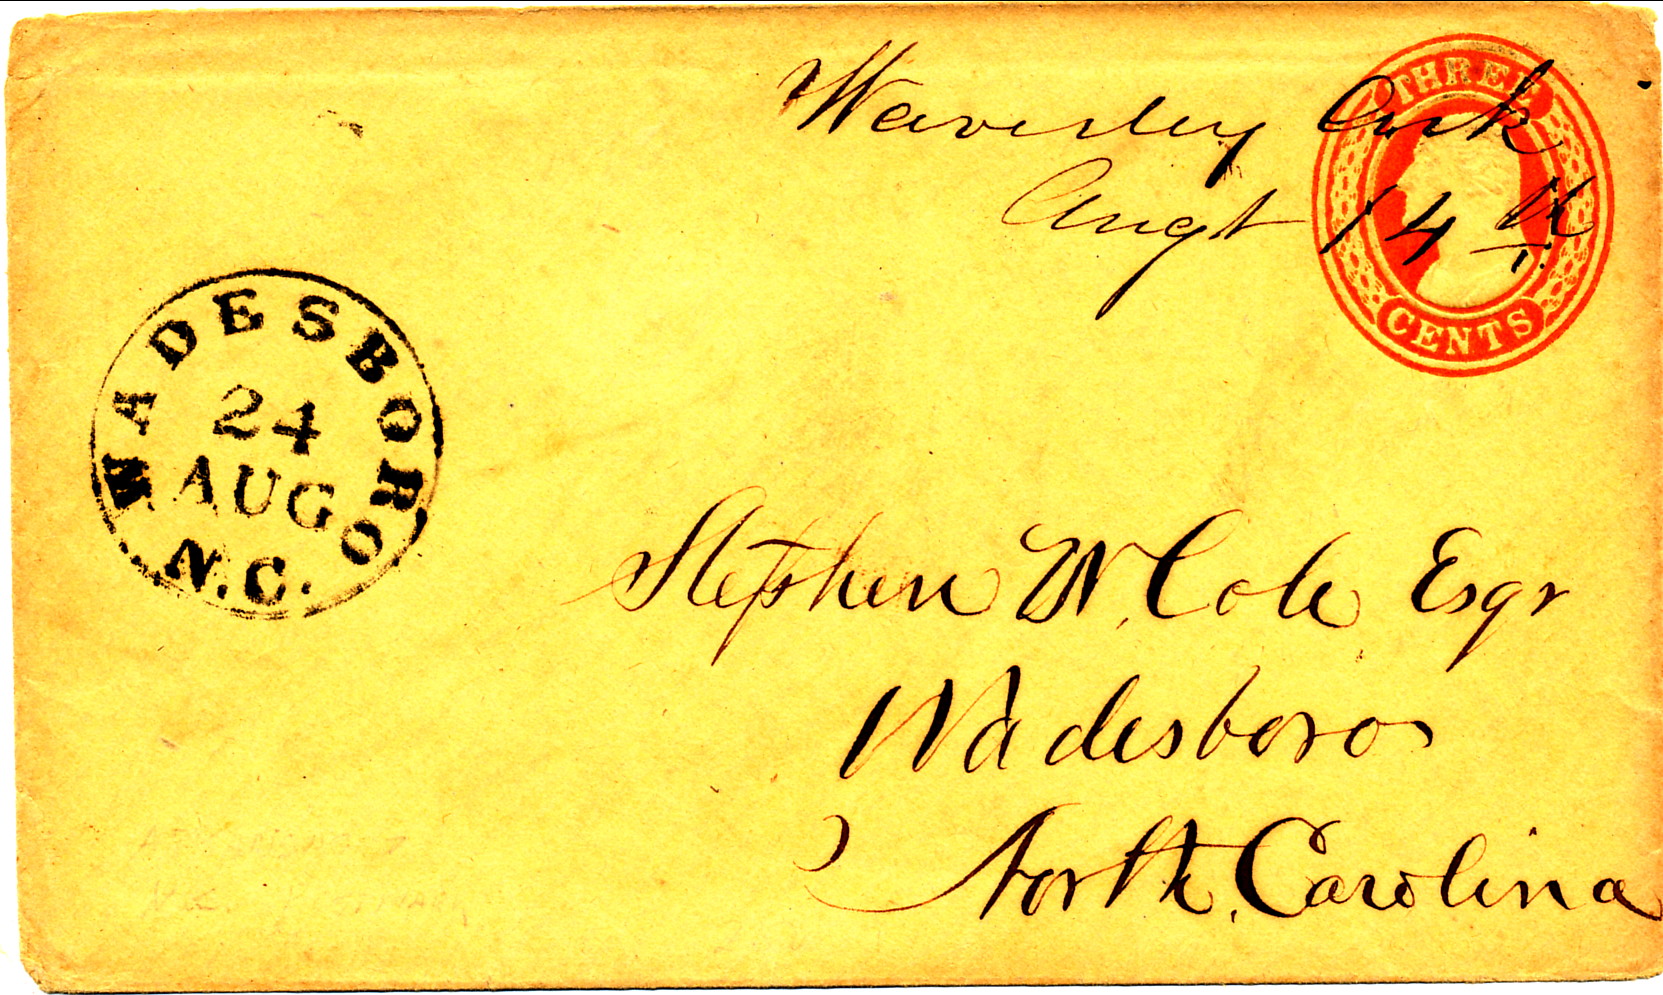 Waverley Ark
Augt 14th
THREE
CENTS
WADESBORO
24
AUG
N.C.
Stephen W. Cole Esqr
Wadesboro
North Carolina